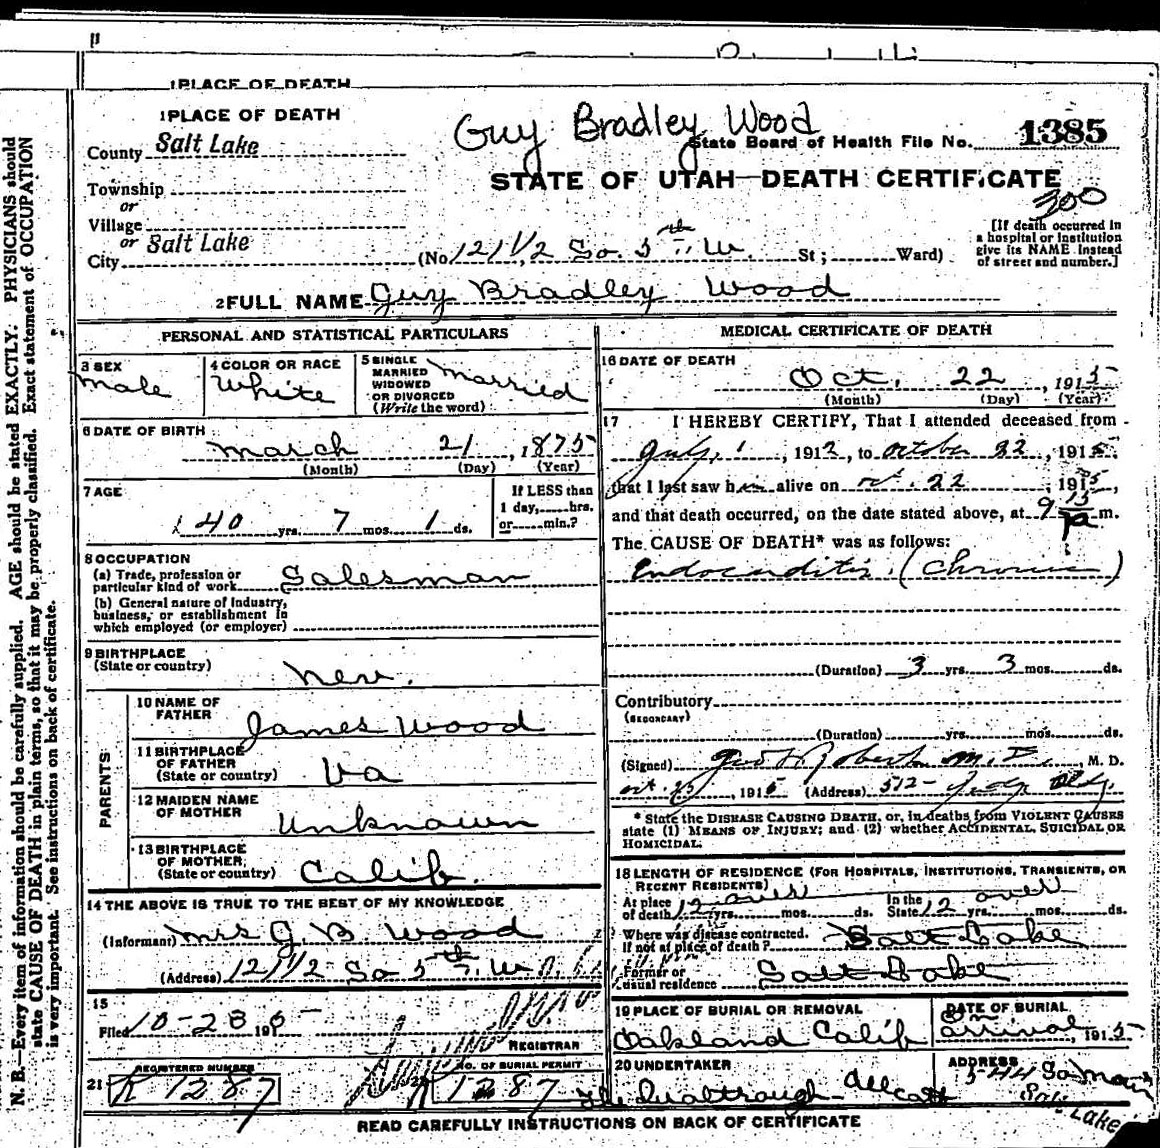 1 PLACE OF DEATH
1 PLACE OF DEATH
Guy Bradley Wood
County Salt Lake
State Board of Health File No. 1385
Township
or
STATE OF UTAH—DEATH CERTIFICATE
300
Village
or
City Salt Lake
(No. 121 1/2 So. 5th W. St; Ward)
[If death occurred in
a hospital or institution
give its NAME instead
of street and number.]
2 FULL NAME Guy Bradley Wood
PERSONAL AND STATISTICAL PARTICULARS
3 SEX
male
4 COLOR OR RACE
White
5 SINGLE
MARRIED
WIDOWED
OR DIVORCED
(Write the word)
married
6 DATE OF BIRTH
march 21, 1875
(Month) (Day) (Year)
7 AGE
40 yrs. 7 mos. 1 ds.
If LESS than
1 day, hrs.
or min.?
8 OCCUPATION
(a) Trade, profession or
particular kind of work Salesman
(b) General nature of industry,
business, or establishment in
which employed (or employer)
9 BIRTHPLACE
(State or country) Nev.
PARENTS
10 NAME OF
FATHER James Wood
11 BIRTHPLACE
OF FATHER
(State or country) Va
12 MAIDEN NAME
OF MOTHER Unknown
13 BIRTHPLACE
OF MOTHER
(State or country) Calif.
14 THE ABOVE IS TRUE TO THE BEST OF MY KNOWLEDGE
(Informant) Mrs G. B. Wood
(Address) 121 1/2 So 5th W
15
Filed 10-23 1915
REGISTRAR
21 REGISTERED NUMBER
R 1287
22 NO. OF BURIAL PERMIT
R 1287
MEDICAL CERTIFICATE OF DEATH
16 DATE OF DEATH
Oct. 22, 1915
(Month) (Day) (Year)
17 I HEREBY CERTIFY, That I attended deceased from
July 1, 1912, to October 22, 1915,
that I last saw him alive on Oct. 22, 1915,
and that death occurred, on the date stated above, at 9 15 P m.
The CAUSE OF DEATH* was as follows:
Endocarditis. (Chronic)
(Duration) 3 yrs. 3 mos. ds.
Contributory
(SECONDARY)
(Duration) yrs. mos. ds.
(Signed) Geo H. Roberts M.D., M. D.
Oct. 23, 1915 (Address) 512 Judge Bldg.
* State the DISEASE CAUSING DEATH, or, in deaths from VIOLENT CAUSES
state (1) MEANS OF INJURY; and (2) whether ACCIDENTAL, SUICIDAL OR
HOMICIDAL.
18 LENGTH OF RESIDENCE (FOR HOSPITALS, INSTITUTIONS, TRANSIENTS, OR
RECENT RESIDENTS)
At place
of death 12 over yrs. mos. ds.
In the
State 12 over yrs. mos. ds.
Where was disease contracted.
If not at place of death? Salt Lake
Former or
usual residence Salt Lake
19 PLACE OF BURIAL OR REMOVAL
Oakland Calif
DATE OF BURIAL
on arrival, 1915
20 UNDERTAKER
ADDRESS
So Main
Salt Lake
READ CAREFULLY INSTRUCTIONS ON BACK OF CERTIFICATE
N. B.—Every item of information should be carefully supplied. AGE should be stated EXACTLY. PHYSICIANS should
state CAUSE OF DEATH in plain terms, so that it may be properly classified. Exact statement of OCCUPATION
is very important. See instructions on back of certificate.